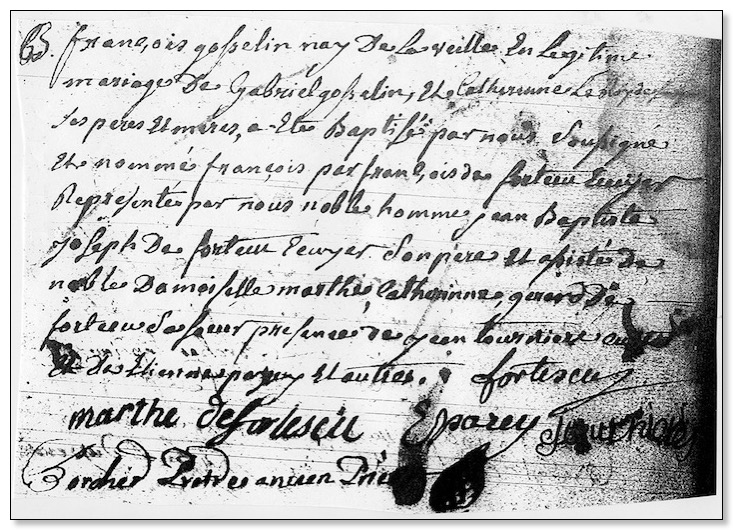 B. françois gosselin nay De la veille En Legitime
mariage De Gabriel gosselin, Et Catherinne
ses peres Et meres, a Ete Baptisé par nous Soussigné
Et nommé françois par françois de forteu Ecuyer
Representé par nous noble homme jean Baptiste
joseph De forteu Ecuyer Son pere Et assisté De
noble Damoiselle marthe Catherinne gerard De
forteu Sa Sœur presence de jean tourniere
Et De Etienne parey Et autres. fortescu
marthe defortescu E parey
Cordier Pretre ancien